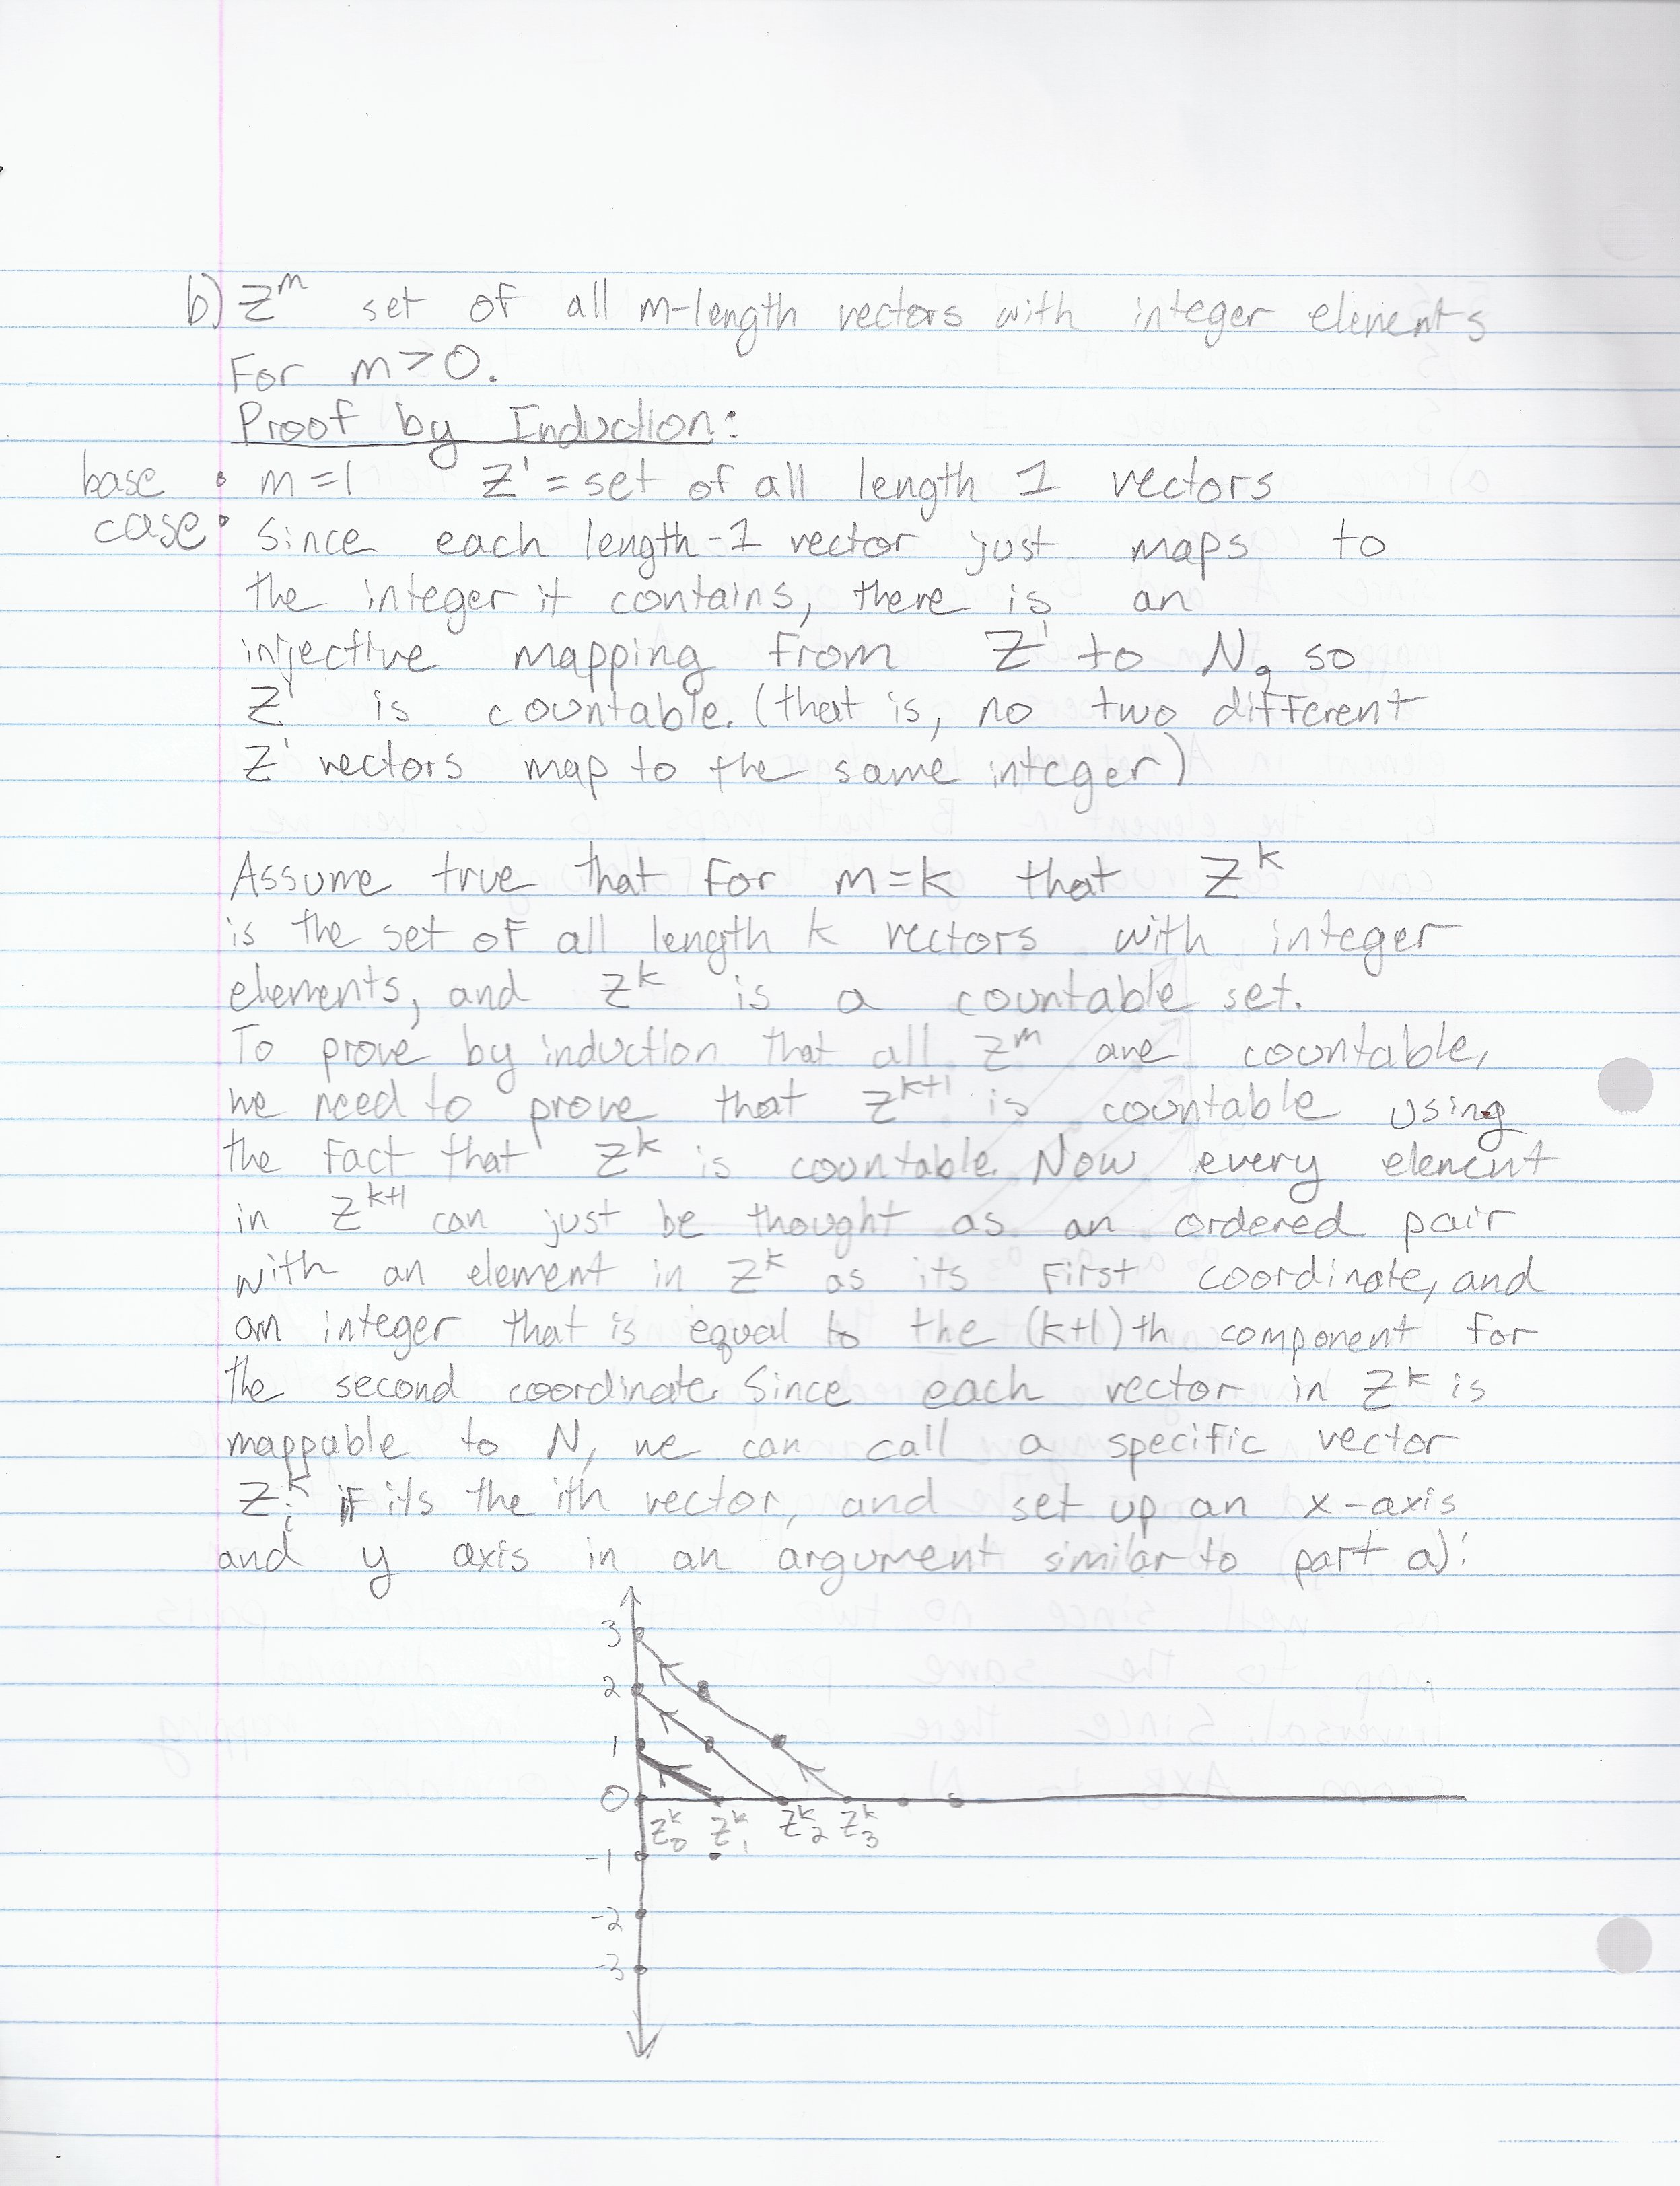 b) Z^m set of all m-length vectors with integer elements
For m>0.
Proof by Induction:
base • m=1 Z^1 = set of all length 1 vectors
case • Since each length-1 vector just maps to
the integer it contains, there is an
injective mapping from Z^1 to N, so
Z^1 is countable. (that is, no two different
Z^1 vectors map to the same integer)
Assume true that for m=k that Z^k
is the set of all length k vectors with integer
elements, and Z^k is a countable set.
To prove by induction that all Z^m are countable,
we need to prove that Z^k+1 is countable using
the fact that Z^k is countable. Now every element
in Z^k+1 can just be thought as an ordered pair
with an element in Z^k as its first coordinate, and
an integer that is equal to the (k+1)th component for
the second coordinate. Since each vector in Z^k is
mappable to N, we can call a specific vector
Z_i^k if its the ith vector, and set up an x-axis
and y axis in an argument similar to part a):
3
2
1
0
Z_0^k Z_1^k Z_2^k Z_3^k
-1
-2
-3